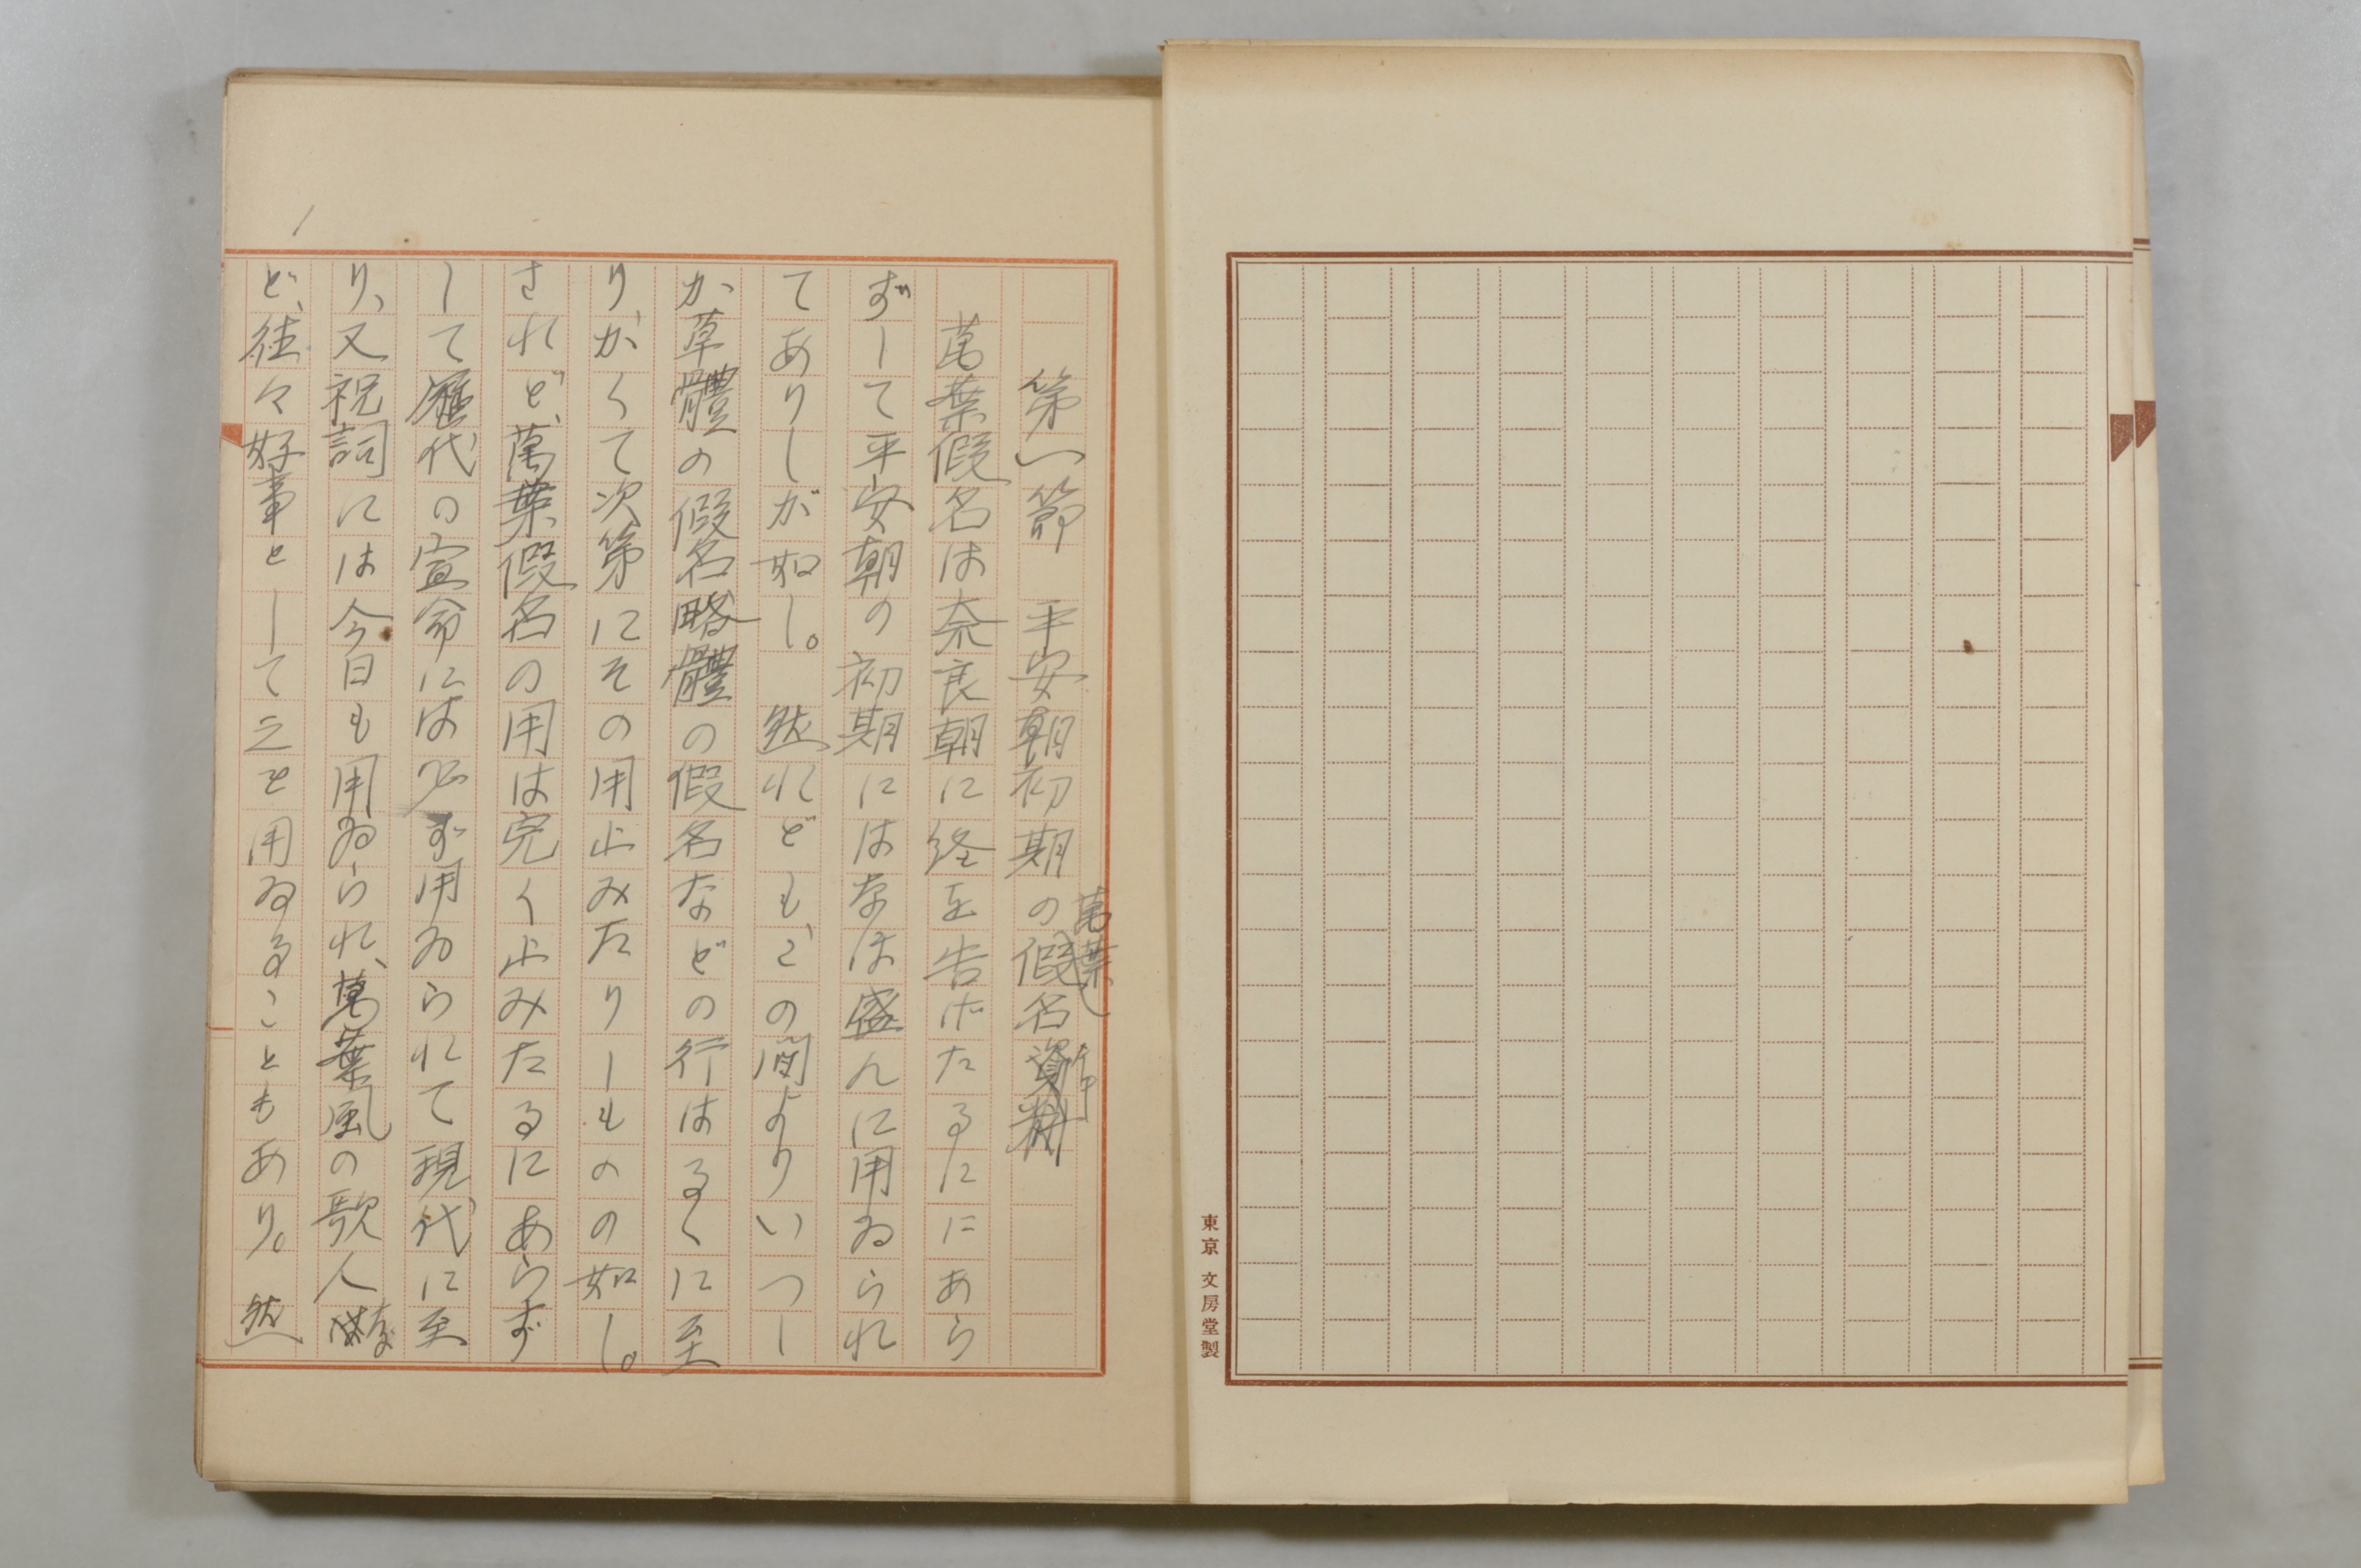 東京 文房堂製
第一節　平安朝初期の萬葉假名
萬葉假名は奈良朝に終を告げたるににあら
ずして平安朝の初期にはなほ盛んに用ゐられ
てありしが如し。　然れども、この間よりいつし
か草體の假名略體の假名などの行はるゝに至
り、かくて次第にその用止みたりしものの如し。
されど、萬葉假名の用は完く止みたるにあらず
して歴代の宣命には必ず用ゐられて現代に至
り、又祝詞には今日も用ゐられ、萬葉風の歌人な
ど、往々好事として之を用ゐることもあり。然